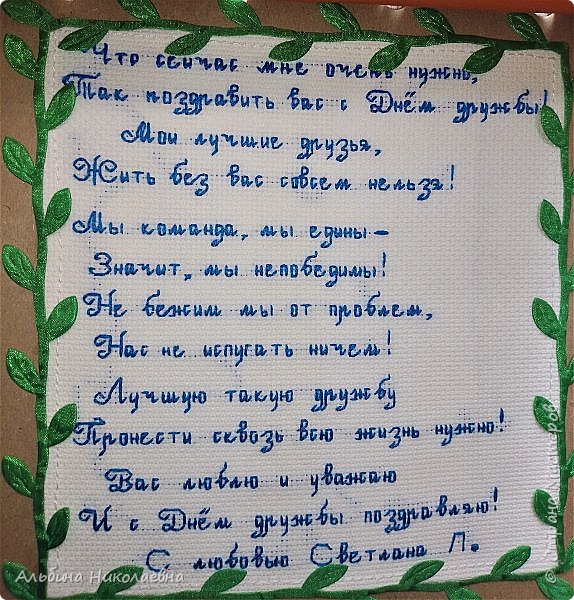 Что сейчас мне очень нужно,
Так поздравить вас с Днём дружбы!
Мои лучшие друзья,
Жить без вас совсем нельзя!
Мы команда, мы едины –
Значит, мы непобедимы!
Не бежим мы от проблем,
Нас не испугать ничем!
Лучшую такую дружбу
Пронести сквозь всю жизнь нужно!
Вас люблю и уважаю
И с Днём дружбы поздравляю!
С любовью Светлана Л.
Альбина Николаевна